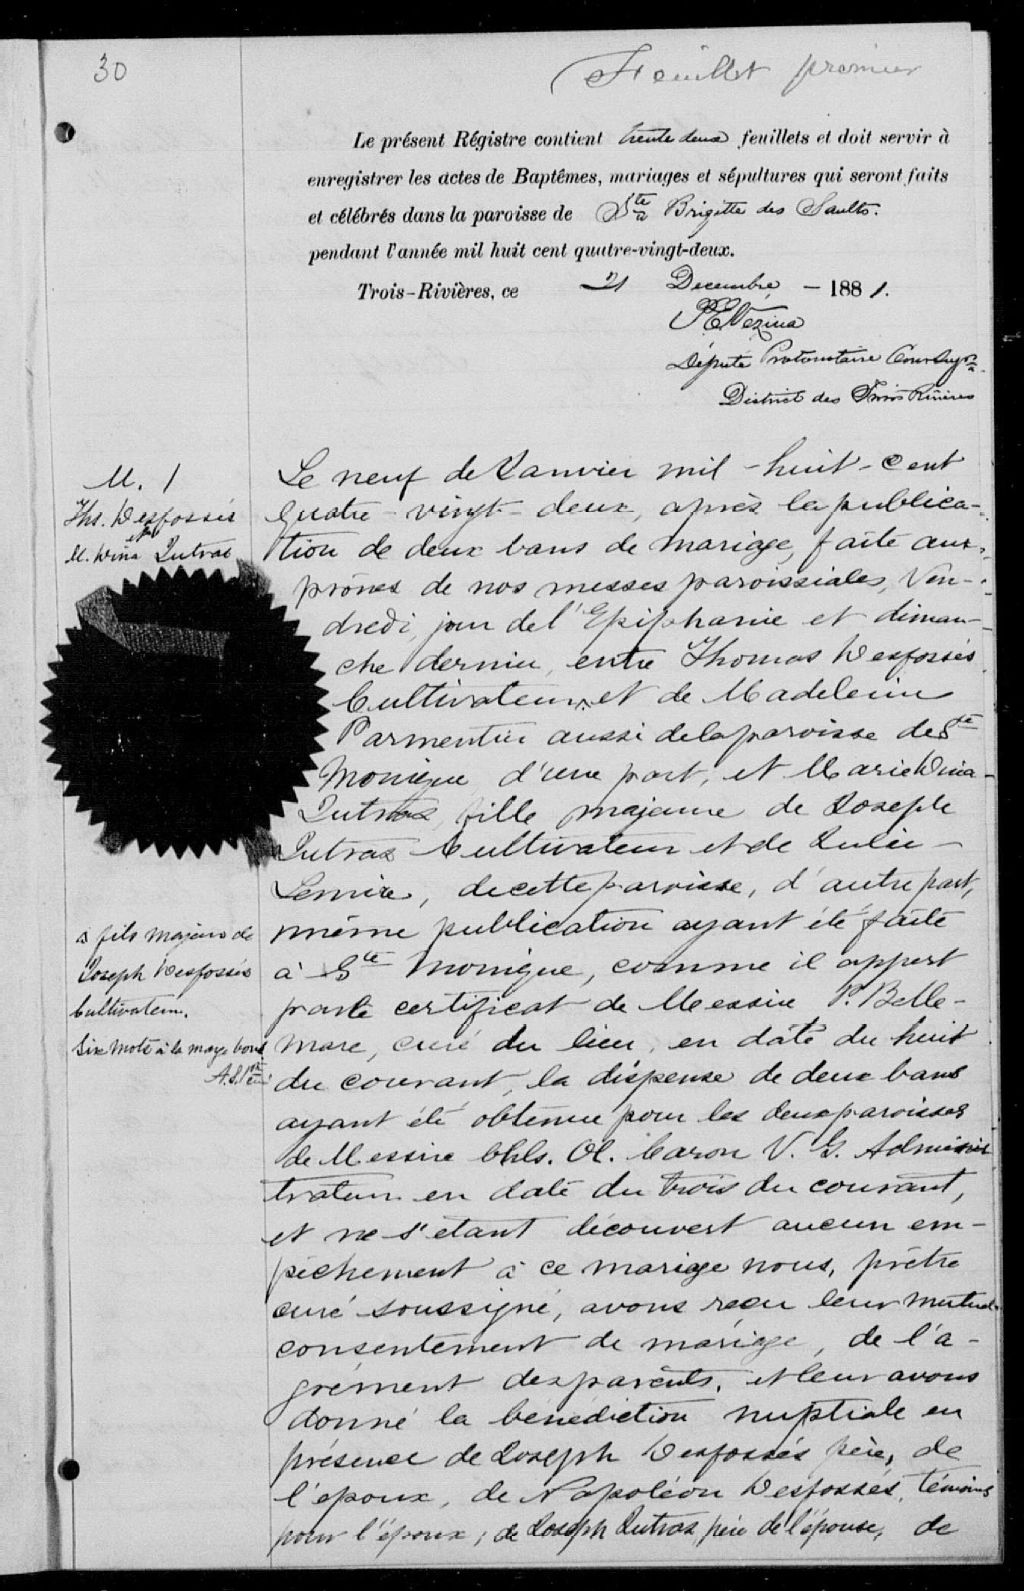 30
Feuillet premier
Le présent Régistre contient trente deux feuillets et doit servir à
enregistrer les actes de Baptêmes, mariages et sépultures qui seront faits
et célébrés dans la paroisse de Ste Brigitte des Saults.
pendant l'année mil huit cent quatre-vingt-deux.
Trois-Rivières, ce 21 Decembre - 1881.
P E Vezina
Député Protonotaire Cour Supre
District des Trois Rivières
M. 1
Ths. Desfossés
et
M. Dina Dutras
Le neuf de Janvier mil - huit - cent
quatre - vingt - deux, après la publica-
tion de deux bans de mariage, faite aux
prônes de nos messes paroissiales, Ven-
dredi, jour de l'Epiphanie et diman-
che dernier, entre Thomas Desfossés
Cultivateur et de Madeleine
Parmentier aussi de la paroisse de Ste
Monique d'une part, et Marie Dina
Dutras, fille majeure de Joseph
Dutras Cultivateur et de Julie
Lemire, de cette paroisse, d'autre part,
même publication ayant été faite
à Ste Monique, comme il appert
par le certificat de Messire P. Belle-
mare, curé du lieu, en date du huit
du courant, la dispense de deux bans
ayant été obtenue pour les deux paroisses
de Messire Chls. Ol. Caron V. G. Adminis
trateur en date du trois du courant,
et ne s'étant découvert aucun em-
pêchement à ce mariage nous, prêtre
curé soussigné, avons reçu leur mutuel
consentement de mariage, de l'a-
grément des parents, et leur avons
donné la bénédiction nuptiale en
présence de Joseph Desfossés père, de
l'époux, de Napoléon Desfossés, témoins
pour l'époux; de Joseph Dutras, père de l'épouse, de
s fils majeur de
Joseph Desfossés
Cultivateur.
Six mots à la marge bons